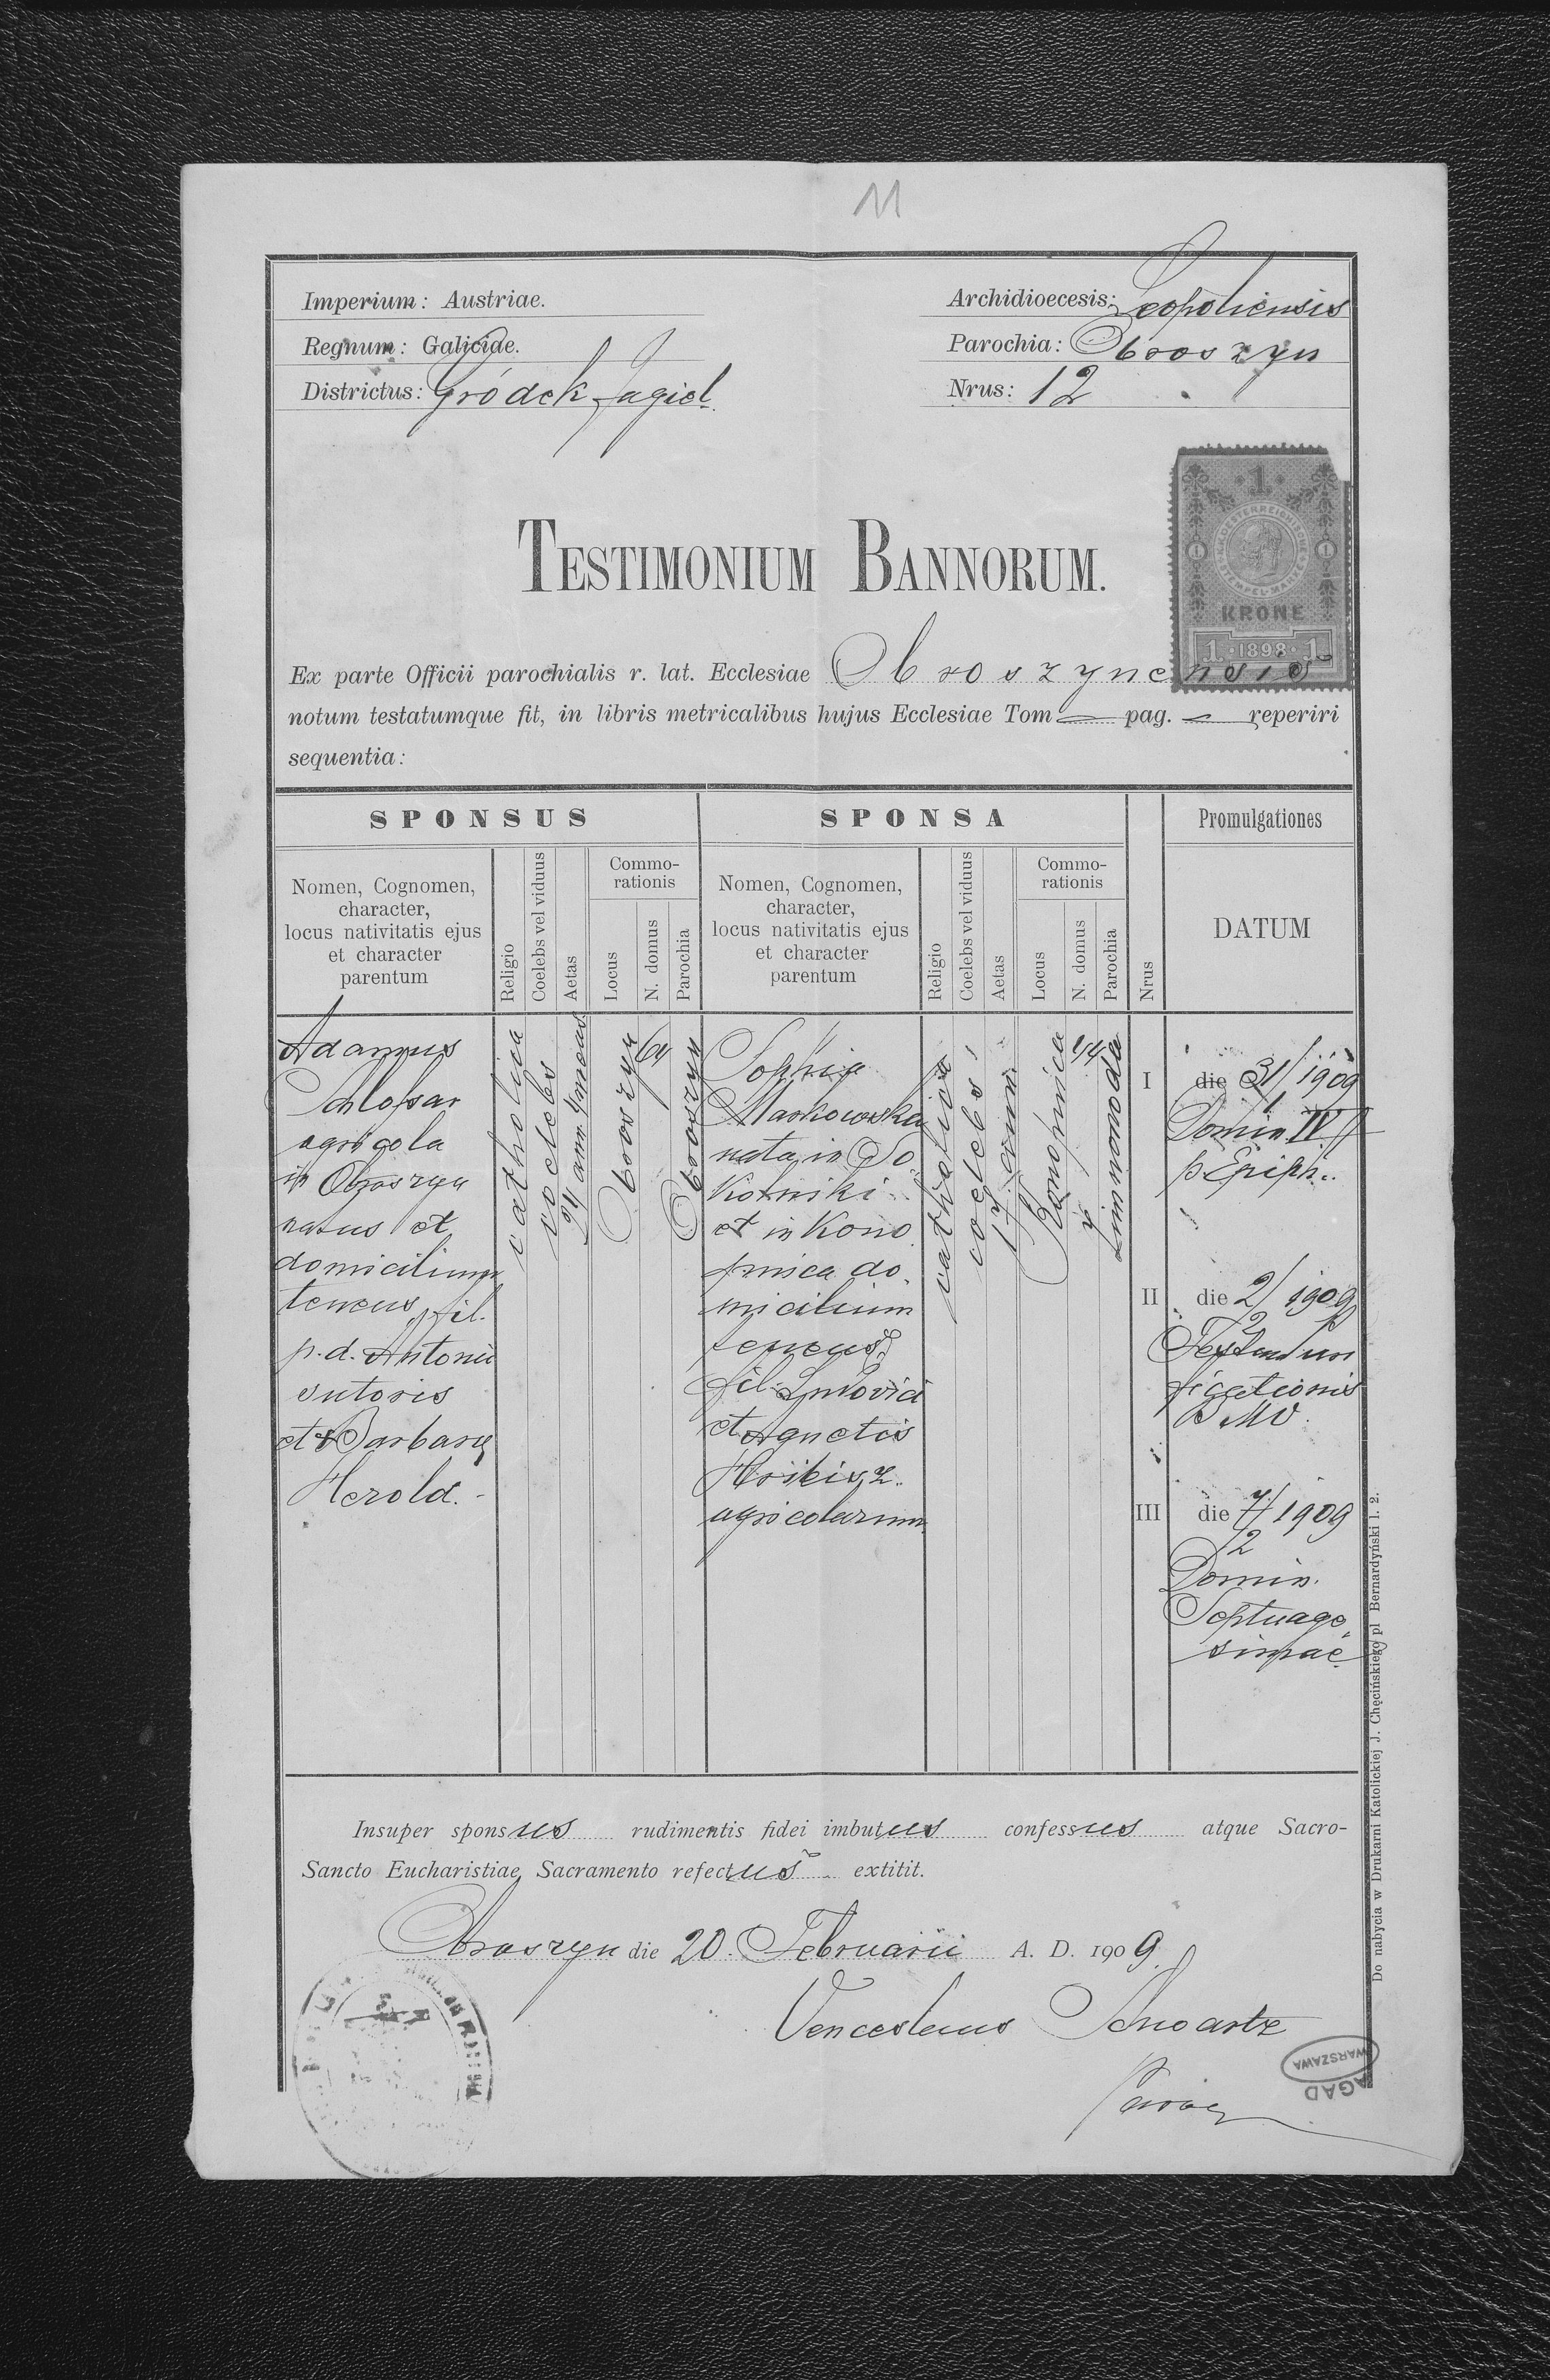 11
Imperium: Austriae.
Regnum: Galiciae.
Districtus: Gródek Jagiel.
Archidioecesis: Leopoliensis
Parochia: Obroszyn
Nrus: 12
1
KRONE
1 · 1898 · 1
TESTIMONIUM BANNORUM.
Ex parte Officii parochialis r. lat. Ecclesiae Obroszynensis
notum testatumque fit, in libris metricalibus hujus Ecclesiae Tom — pag. — reperiri
sequentia:
SPONSUS
SPONSA
Nrus
Promulgationes
Nomen, Cognomen,
character,
locus nativitatis ejus
et character
parentum
Religio
Coelebs vel viduus
Aetas
Commo-
rationis
Locus
N. domus
Parochia
Nomen, Cognomen,
character,
locus nativitatis ejus
et character
parentum
Religio
Coelebs vel viduus
Aetas
Commo-
rationis
Locus
N. domus
Parochia
DATUM
Adamus
Schlosar
agricola
in Obroszyn
natus et
domicilium
tenens, fil.
p. d. Antonii
sutoris
et Barbary
Herold.
catholica
coelebs
24 ann.
Obroszyn
Obroszyn
Sophia
Markowska
nata in So
kolniki
et in Kono
pnica do
micilium
tenens
fil. Ludovici
et Agnetis
agricolarum
catholica
coelebs
17 ann.
Konopnica
I
die 31/1 1909
Domin. IV
p. Epiph.
II
die 2/2 1909
Festum Puri
ficationis
B M V.
III
die 7/2 1909
Domin.
Septuage
simae
Insuper sponsus rudimentis fidei imbutus confessus atque Sacro-
Sancto Eucharistiae Sacramento refectus extitit.
Obroszyn die 20. Februarii A. D. 1909.
Venceslaus Schwartz
AGAD
WARSZAWA
Do nabycia w Drukarni Katolickiej J. Chęcińskiego pl Bernardyński l. 2.